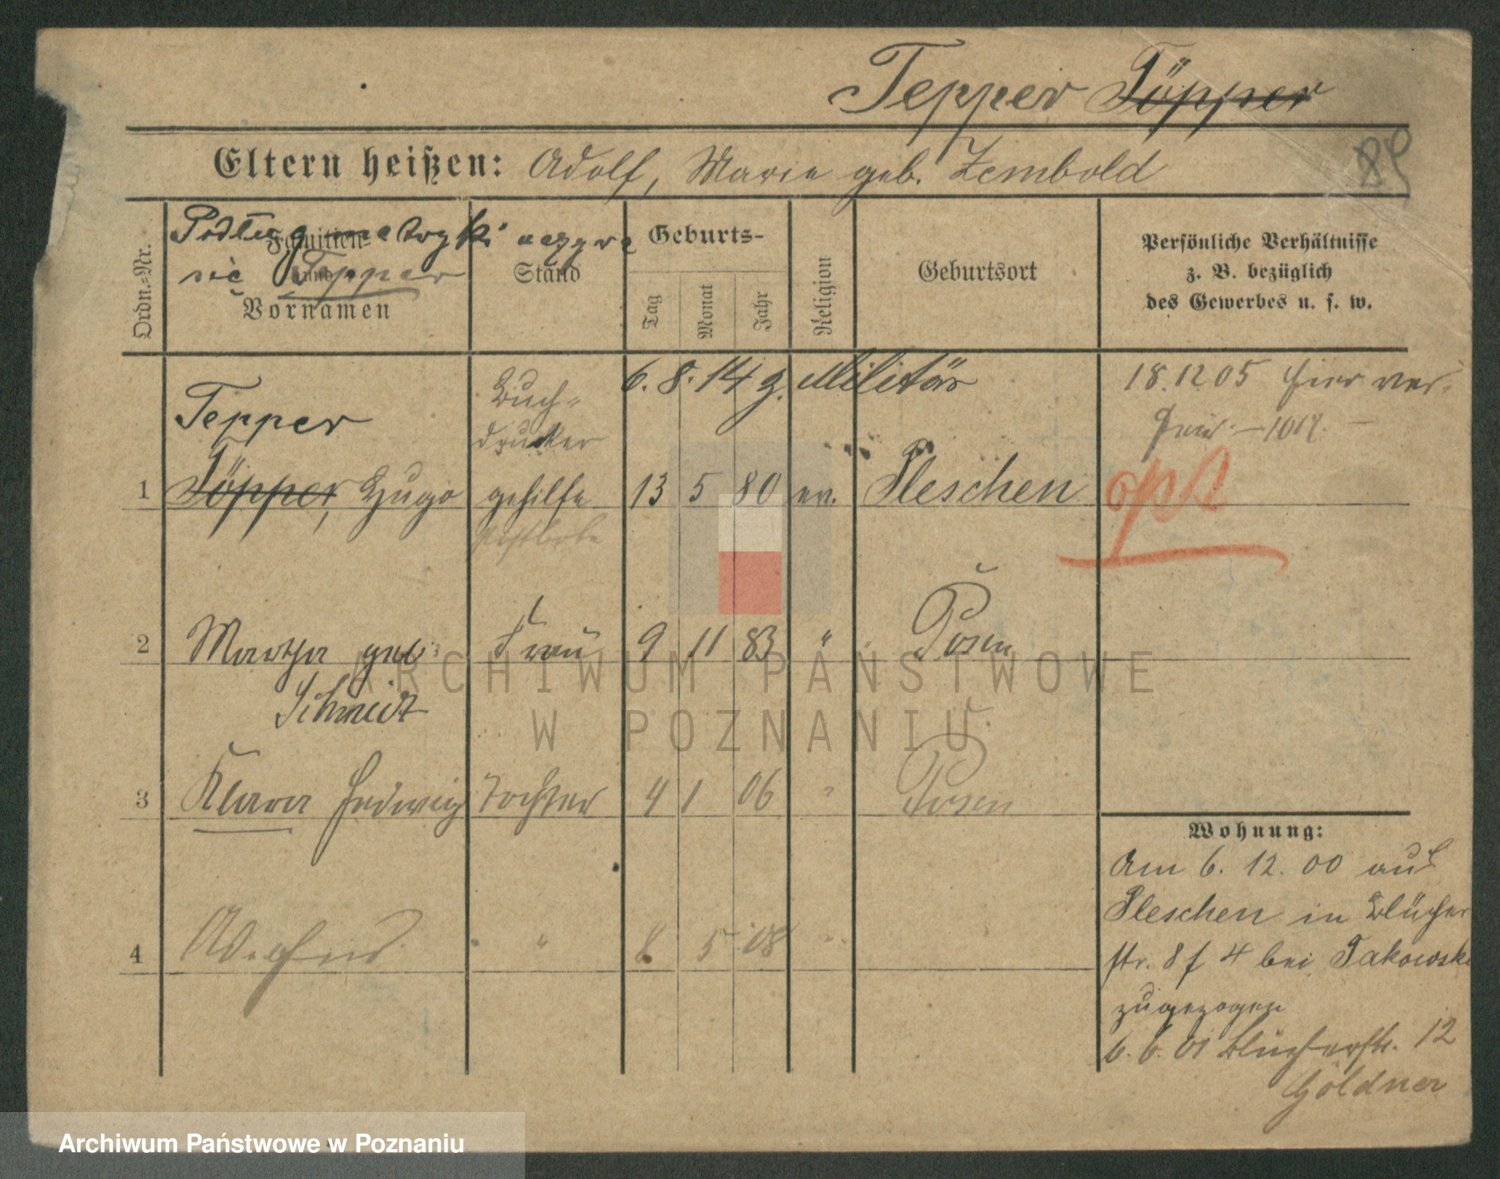 Tepper Töpper
89
Eltern heißen: Adolf, Marie geb. Zembold
Ordn.-Nr.
Familien- und Vornamen
Podług metryki nazywa
się Tepper
Stand
Geburts-
Tag
Monat
Jahr
Religion
Geburtsort
Persönliche Verhältnisse
z. B. bezüglich
des Gewerbes u. s. w.
6. 8. 14 z. Militär
18.12 05 hier ver.
Tepper
Buch-
drucker
1 Töpper, Hugo gehilfe 13 5 80 ev. Pleschen
opt
2 Martha geb. Frau 9 11 83 " Posen
Schmidt
3 Klara Hedwig Tochter 4 1 06 " Posen
4 " 8 5 08 "
Wohnung:
Am 6. 12. 00 aus
Pleschen in Blücher
str. 8 f 4 bei Jakowski
zugezogen
6. 6. 01 Blücherstr. 12
Göldner
ARCHIWUM PAŃSTWOWE
W POZNANIU
Archiwum Państwowe w Poznaniu